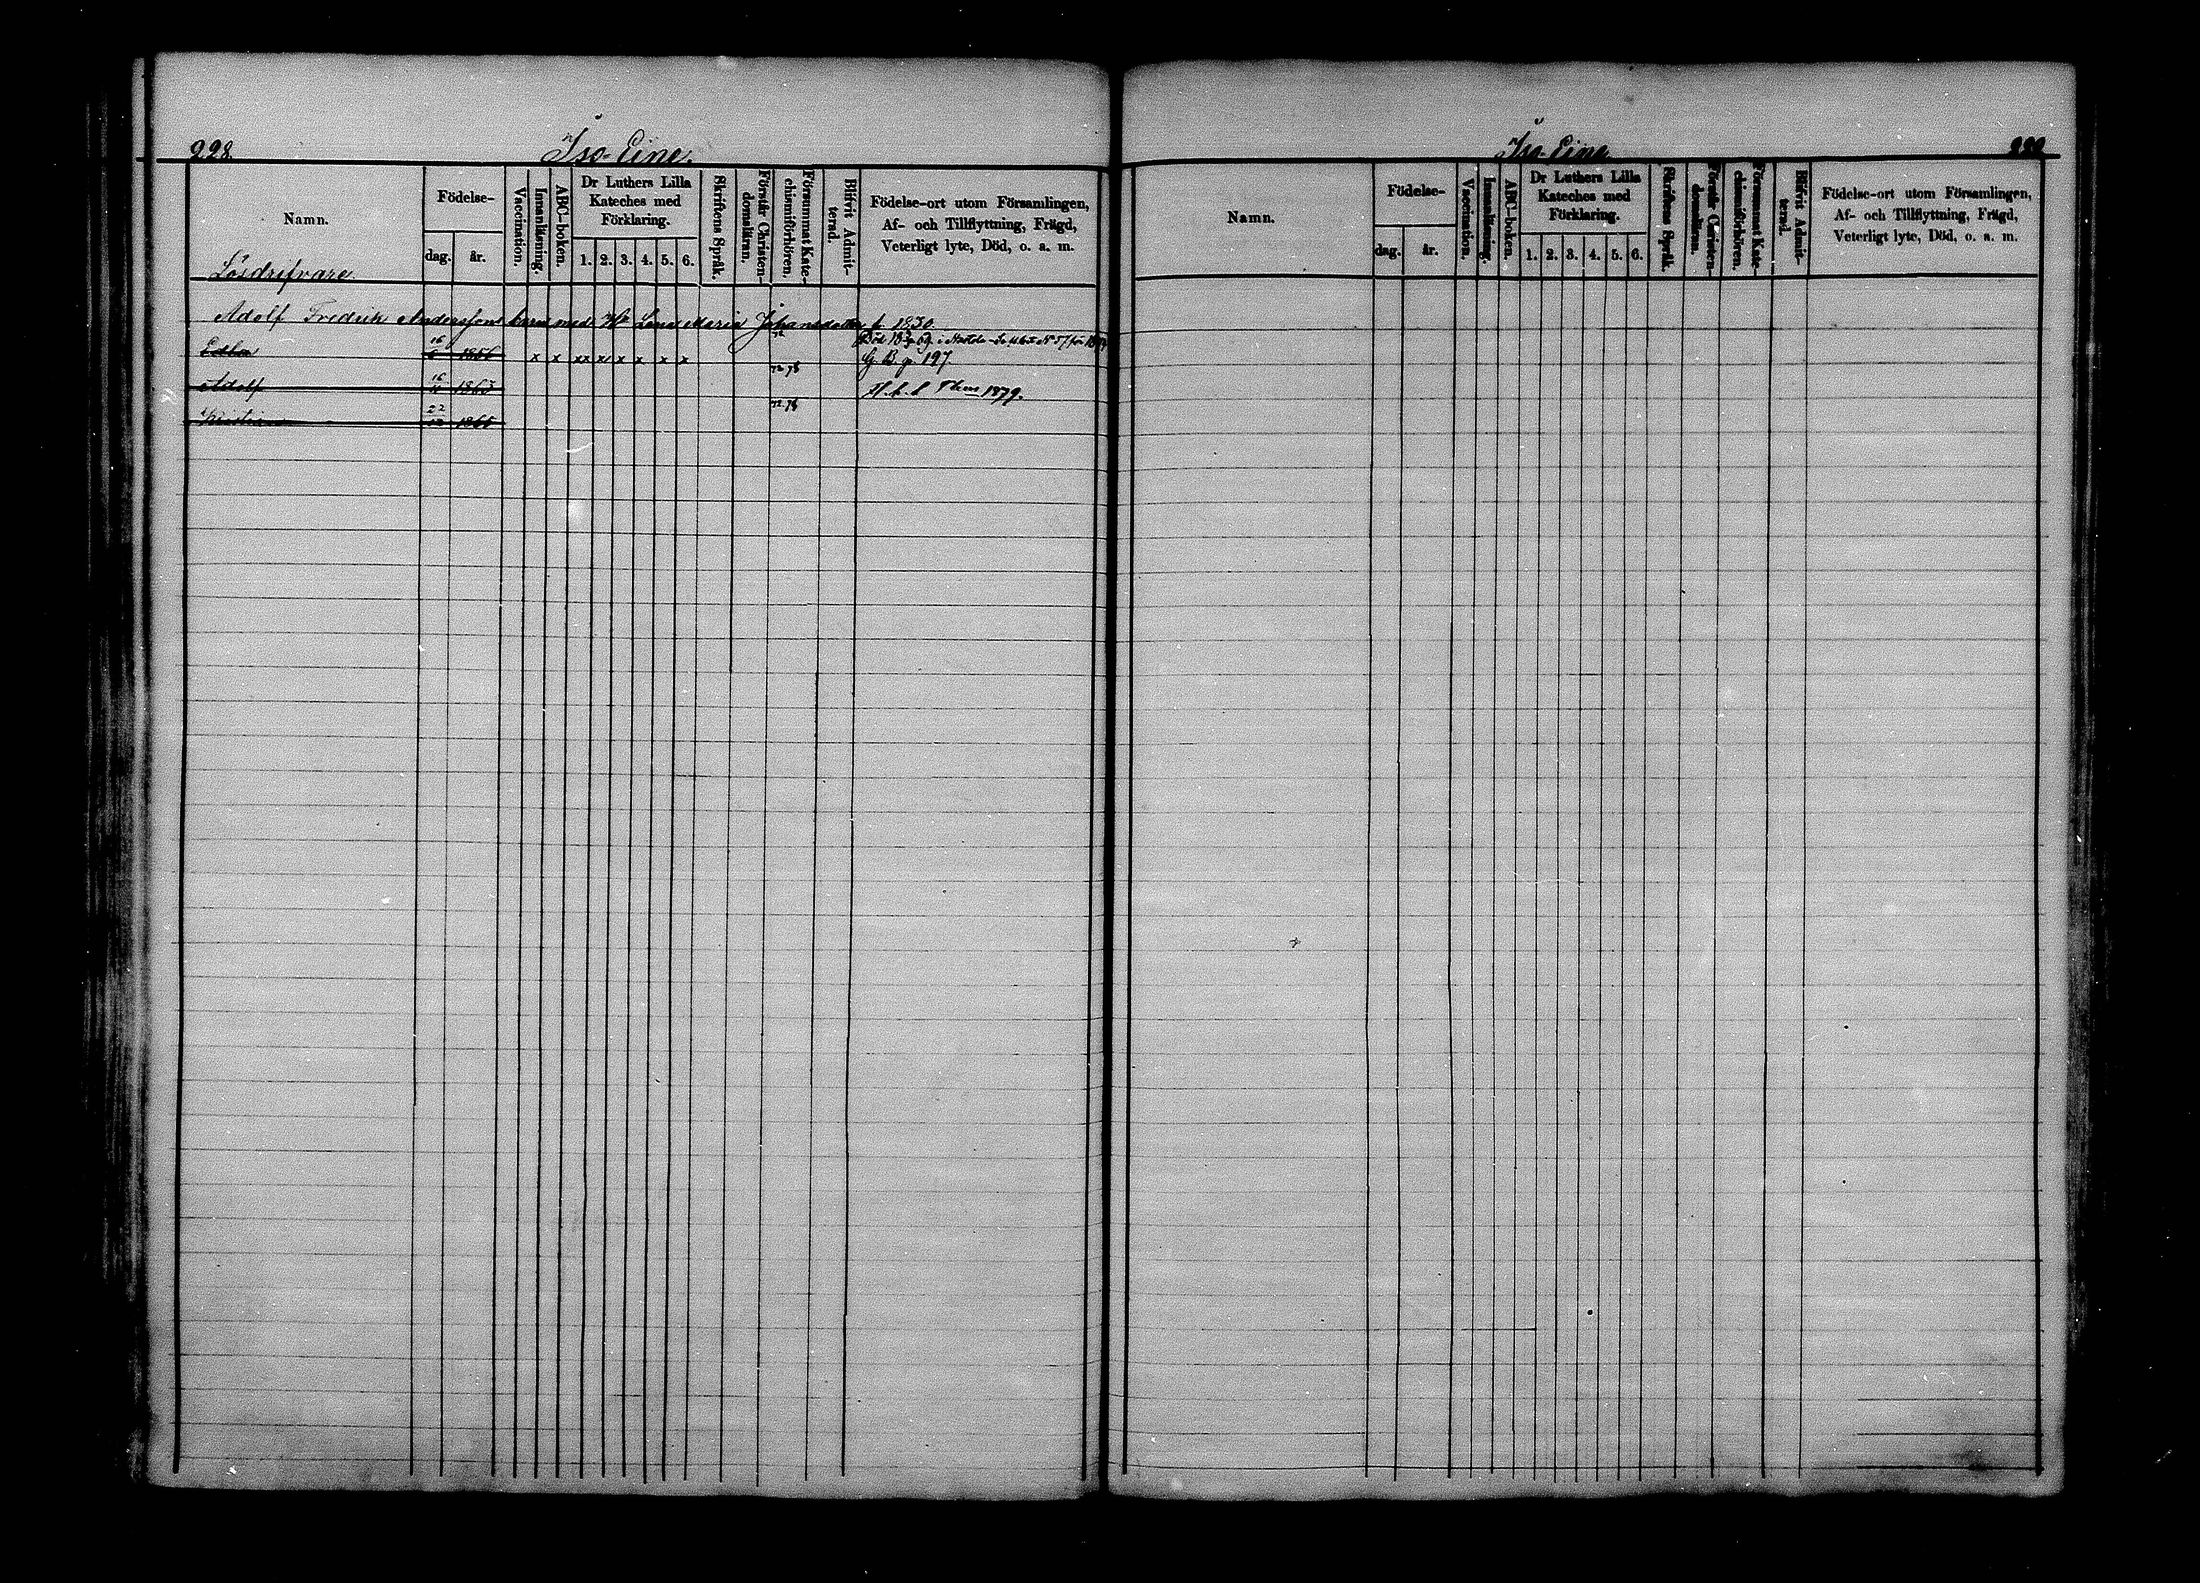 228.
Iso-Eine.
Namn.
Födelse-
dag.
år.
Vaccination.
Innanläsning.
ABC-boken.
Dr Luthers Lilla
Kateches med
Förklaring.
1. 2. 3. 4. 5. 6.
Skriftens Språk.
Förstår Christen-
domsläran.
Försummat Kate-
chismiförhören.
Blifvit Admit-
terad.
Födelse-ort utom Församlingen,
Af- och Tillflyttning, Frägd,
Veterligt lyte, Död, o. a. m.
Lösdrifvare
Adolf Fredrik Anderssons barn med H. Lena Maria Johansdotter f. 1830.
Edla 16 1856 x x xx x x x x x 72 G. B. p. 197
Adolf 16 1863 72 78 1879.
Kristian 22 1865 72 78
Iso-Eine
229
Namn.
Födelse-
dag.
år.
Vaccination.
Innanläsning.
ABC-boken.
Dr Luthers Lilla
Kateches med
Förklaring.
1. 2. 3. 4. 5. 6.
Skriftens Språk.
Förstår Christen-
domsläran.
Försummat Kate-
chismiförhören.
Blifvit Admit-
terad.
Födelse-ort utom Församlingen,
Af- och Tillflyttning, Frägd,
Veterligt lyte, Död, o. a. m.